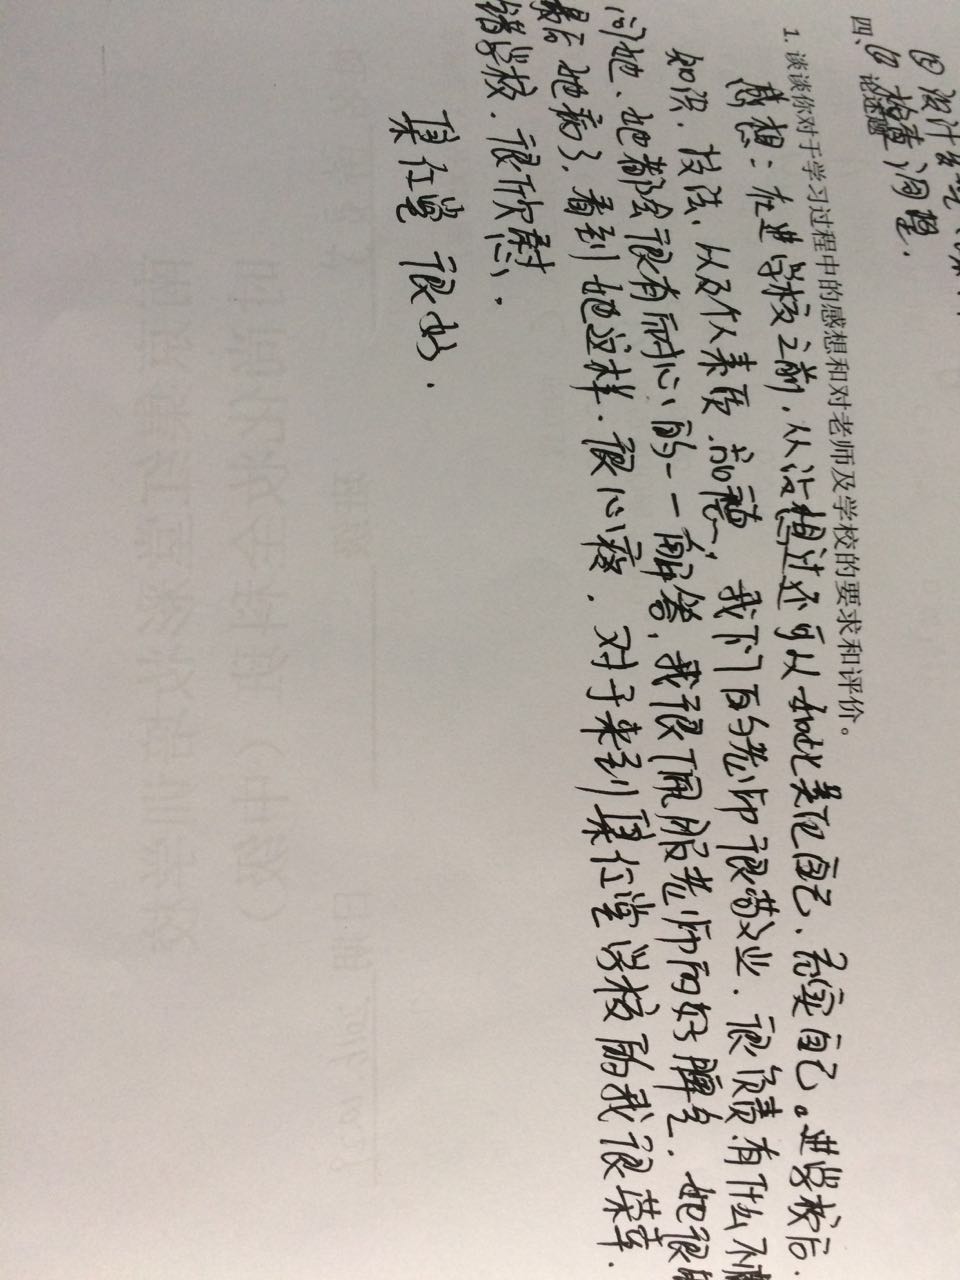 四、论述题
1. 谈谈你对于学习过程中的感想和对老师及学校的要求和评价。
感想：在进学校之前，从没想过还可以如此美丽自己，充实自己。进学校后，
知识，技法，以及个人素质，品德，我们的老师很敬业，很负责，有什么不懂
问她，她都会很有耐心的一一解答，我很佩服老师的好脾气，她很
最后她病了，看到她这样，很心疼，对于来到集仁堂学校的我很荣幸，
错学校，很欣慰，
集仁堂 很好．